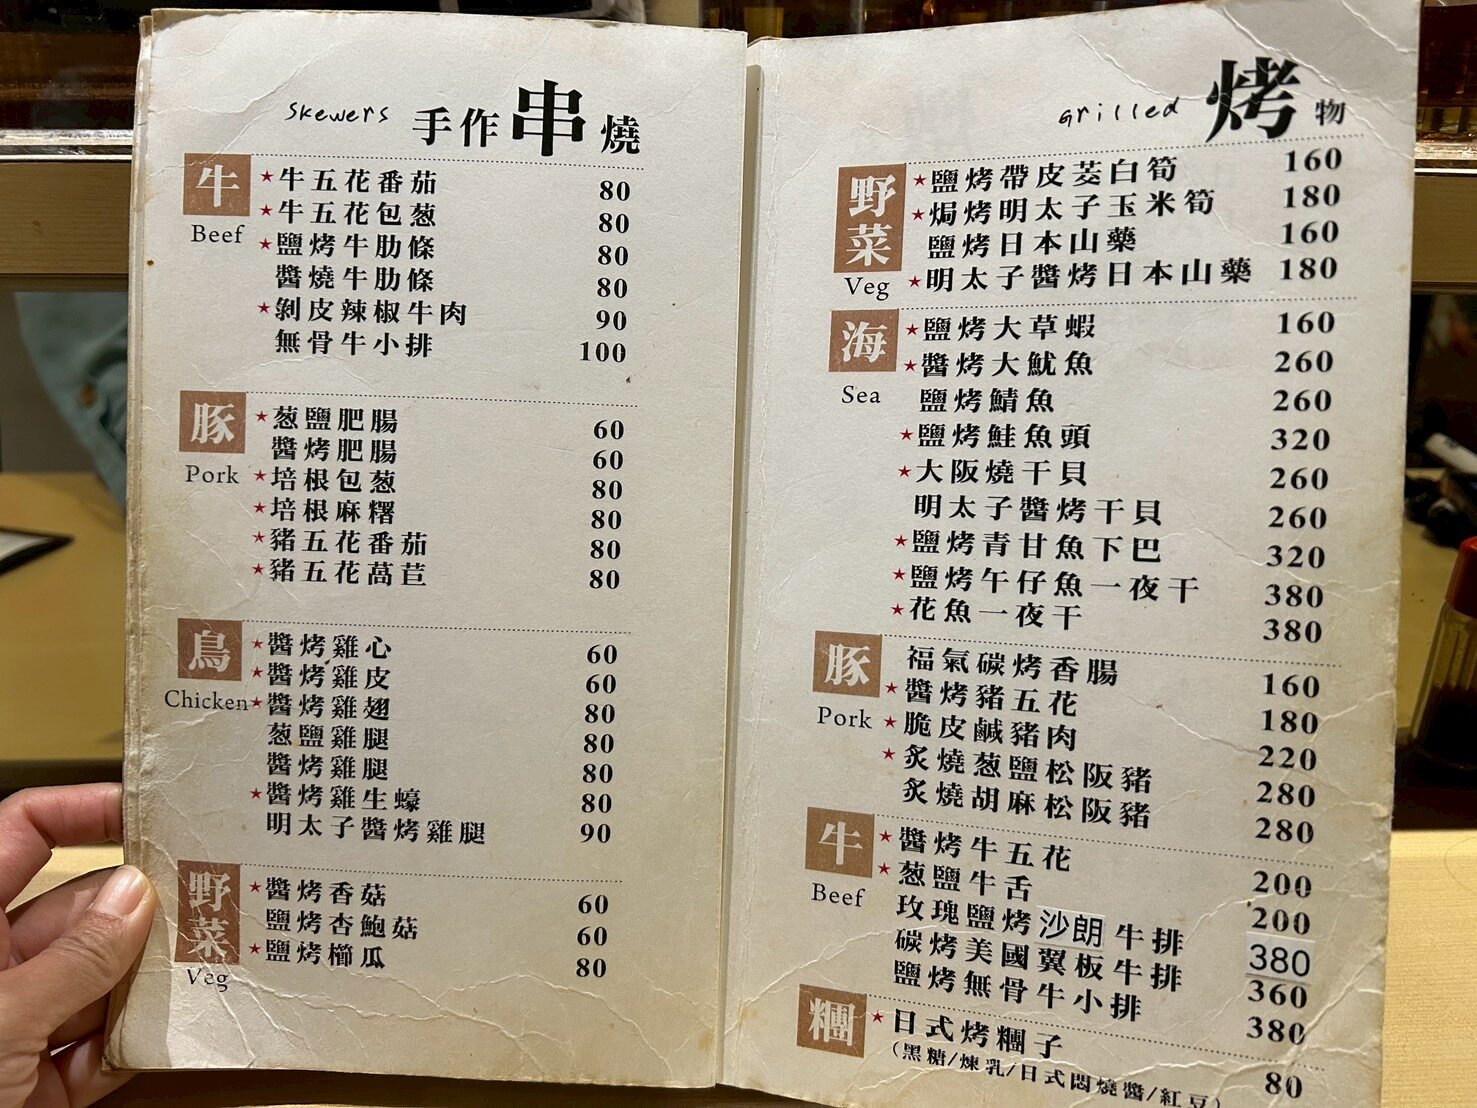 Skewers 手作串燒
牛
Beef
★牛五花番茄 80
★牛五花包蔥 80
★鹽烤牛肋條 80
醬燒牛肋條 80
★剝皮辣椒牛肉 90
無骨牛小排 100
豚
Pork
★蔥鹽肥腸 60
醬烤肥腸 60
★培根包蔥 80
★培根麻糬 80
★豬五花番茄 80
★豬五花萵苣 80
鳥
Chicken
★醬烤雞心 60
★醬烤雞皮 60
★醬烤雞翅 80
蔥鹽雞腿 80
醬烤雞腿 80
★醬烤雞生蠔 80
明太子醬烤雞腿 90
野菜
Veg
★醬烤香菇 60
鹽烤杏鮑菇 60
★鹽烤櫛瓜 80
Grilled 烤物
野菜
Veg
★鹽烤帶皮茭白筍 160
★焗烤明太子玉米筍 180
鹽烤日本山藥 160
★明太子醬烤日本山藥 180
海
Sea
★鹽烤大草蝦 160
★醬烤大魷魚 260
鹽烤鯖魚 260
★鹽烤鮭魚頭 320
★大阪燒干貝 260
明太子醬烤干貝 260
★鹽烤青甘魚下巴 320
★鹽烤午仔魚一夜干 380
★花魚一夜干 380
豚
Pork
福氣碳烤香腸 160
★醬烤豬五花 180
★脆皮鹹豬肉 220
★炙燒蔥鹽松阪豬 280
炙燒胡麻松阪豬 280
牛
Beef
★醬烤牛五花 200
★蔥鹽牛舌 200
玫瑰鹽烤沙朗牛排 380
碳烤美國翼板牛排 360
鹽烤無骨牛小排 380
糰
★日式烤糰子 80
(黑糖/煉乳/日式悶燒醬/紅豆)